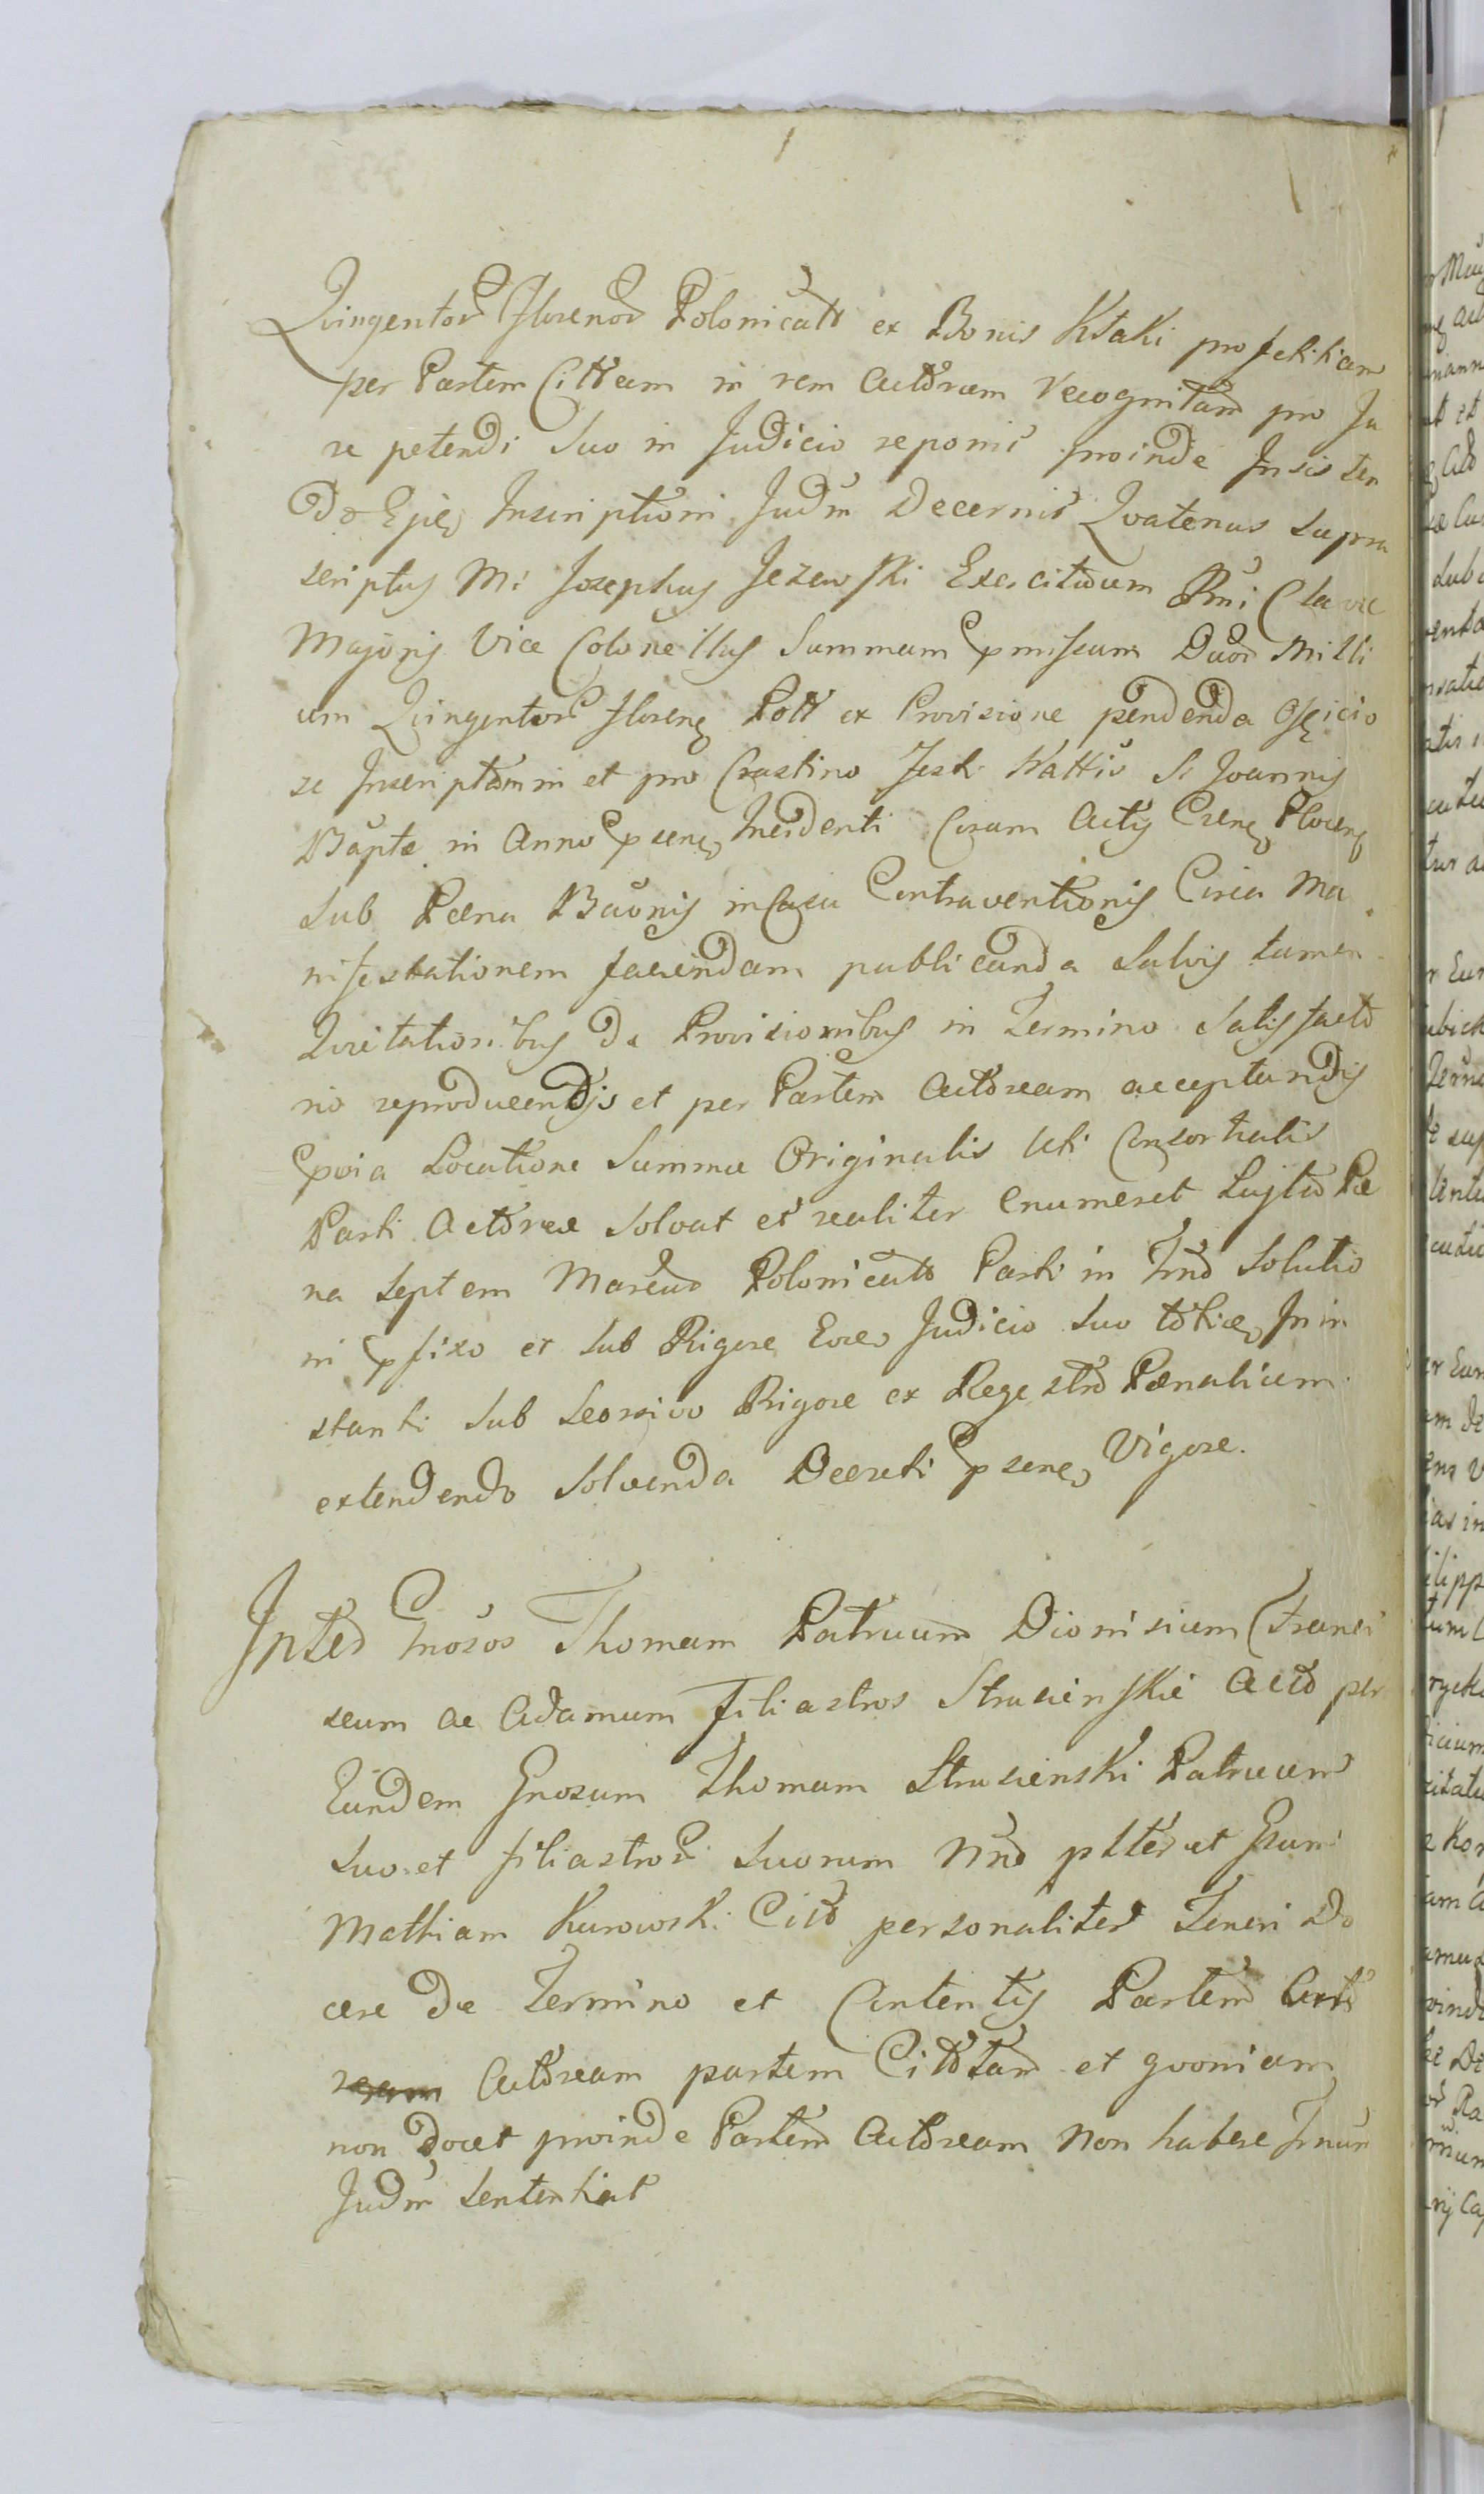 Qvingentor Florenor Polonicall ex Bonis Kłaki profectitiam
per Partem Cittam in rem Actoream recognitam pro Ju
re petendi Suo in Judicio reponit proinde Insisten
do Ejq Inscriptioni Judm Decernit Qvatenus supra
scriptus M: Josephus Jezewski Exercituum Rni Clavae
Majoris Vice Colonellus Summam pmissam Duor Milli
um Qvingentor Floreng Poll ex Provisione pendenda Officio
se Inscriptionni et pro Crastino Festi Nattis S. Joannis
Bapte in Anno psenq Incidenti Coram Actis Csenq Ploceng
sub Poena Baonis in Casu Contraventionis Circa Ma
nifestationem faciendam publicanda Salvis tamen
Qvietationibus de Provisionibus in Termino Satisfacto
rio reproducendis et per Partem Actoream acceptandis
pvia Locatione Summae Originalis uti Consortialis
Parti Actoreae Solvat et realiter enumeret Luytio Poe
na Septem Marcus Polonicall Parti in Tmo Solutio
ni pfixo et Sub Rigore Judicio Suo In in
stanti Sub Seorsivo Rigore ex Regestro Poenalium
extendendo Solvenda Decreti psenq Vigore.
Inter Gnosos Thomam Patruum Dionisium Franci
scum ac Adamum Filiastros Strusienskie Acto per
Eundem Gnosum Thomam Strusienski Patruum
Suo et filiastror Suorum Nno plter et Gsum
Mathiam Kurowski Citt personaliter Teneri Do
cere de Termino et Contentis Partem Acto
ream Actoream partem Cittam et qvoniam
non docet proinde Partem Actoream non habere Tmum
Judm Sententiat